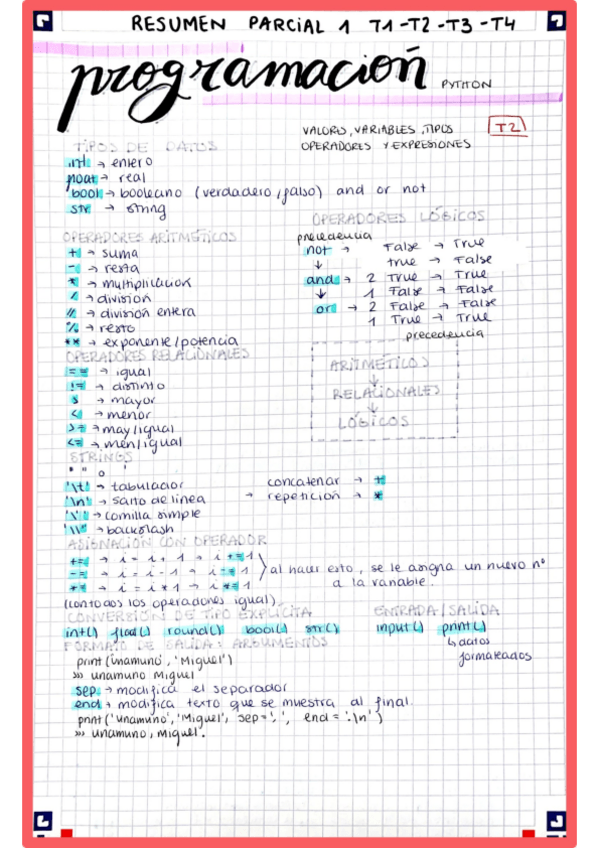 RESUMEN PARCIAL 1 T1-T2-T3-T4
programación PYTHON
VALORES, VARIABLES, TIPOS T2
OPERADORES Y EXPRESIONES
TIPOS DE DATOS
int → entero
float → real
bool → booleano (verdadero/falso) and or not
str → string
OPERADORES LÓGICOS
precedencia
not → False → True
↓ true → False
and → 2 True → True
↓ 1 False → False
or → 2 False → False
1 True → True
OPERADORES ARITMÉTICOS
+ → suma
- → resta
* → multiplicación
/ → división
// → división entera
% → resto
** → exponente/potencia
precedencia
ARITMÉTICOS
↓
RELACIONALES
↓
LÓGICOS
OPERADORES RELACIONALES
== → igual
!= → distinto
> → mayor
< → menor
>= → may/igual
<= → men/igual
STRINGS
" " o '
'\t' → tabulador
'\n' → salto de línea
'\'' → comilla simple
'\\' → backslash
concatenar → +
→ repetición → *
ASIGNACIÓN CON OPERADOR
+= → i = i + 1 → i += 1
-= → i = i - 1 → i -= 1
*= → i = i * 1 → i *= 1
al hacer esto, se le asigna un nuevo nº
a la variable.
(con todos los operadores igual).
CONVERSIÓN DE TIPO EXPLÍCITA
int() float() round() bool() str()
ENTRADA/SALIDA
input() print()
↳ datos
formateados
FORMATO DE SALIDA: ARGUMENTOS
print('unamuno', 'Miguel')
>>> unamuno Miguel
sep → modifica el separador
end → modifica texto que se muestra al final.
print('unamuno', 'Miguel', sep=', ', end = '.\n')
>>> unamuno, Miguel.